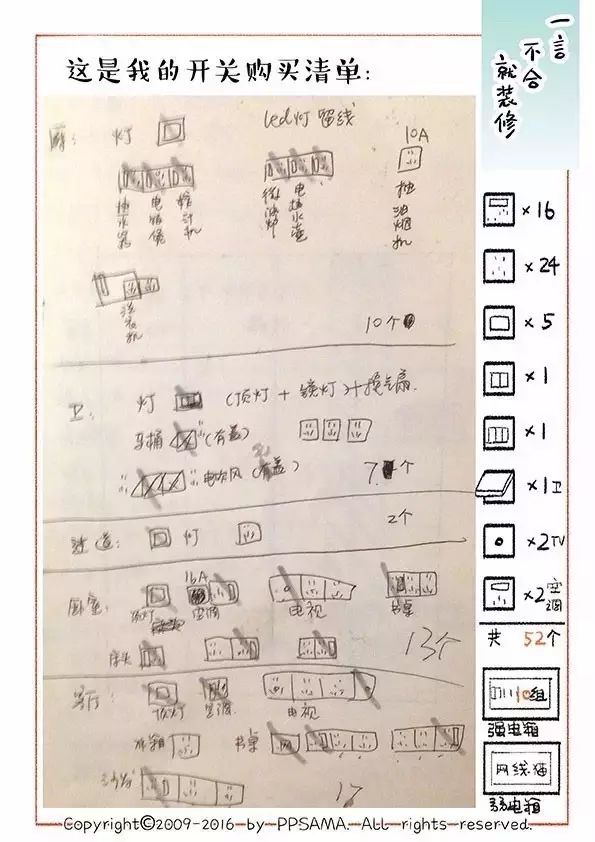 一言
不合
就装修
这是我的开关购买清单:
厨: 灯
led灯 留线
10A
抽油烟机
电饭煲
榨汁机
微波炉
电热水壶
洗衣机
10个
卫: 灯 (顶灯 + 镜灯)+换气扇
马桶 (有盖)
电吹风 (有盖)
7个
过道: 灯
2个
卧室:
顶灯
16A
空调
电视
书桌
床头
13个
客厅:
顶灯
空调
电视
冰箱
书桌
网
沙发
17
×16
×24
×5
×1
×1
×1卫
×2TV
×2空调
共 52个
10组
强电箱
网线猫
弱电箱
Copyright©2009-2016 by PPSAMA. All rights reserved.